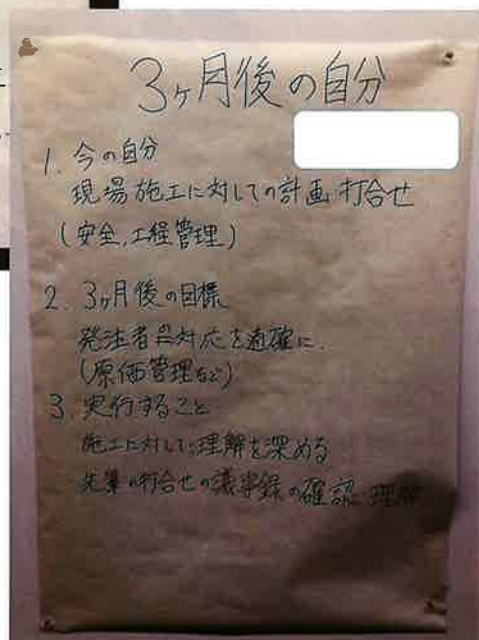 3ヶ月後の自分
1. 今の自分
現場施工に対しての計画・打合せ
(安全、工経管理)
2. 3ヶ月後の目標
発注者 対応を適確に.
(原価管理など)
3. 実行すること
施工に対して理解を深める
先輩の打合せの議事録の確認・理解